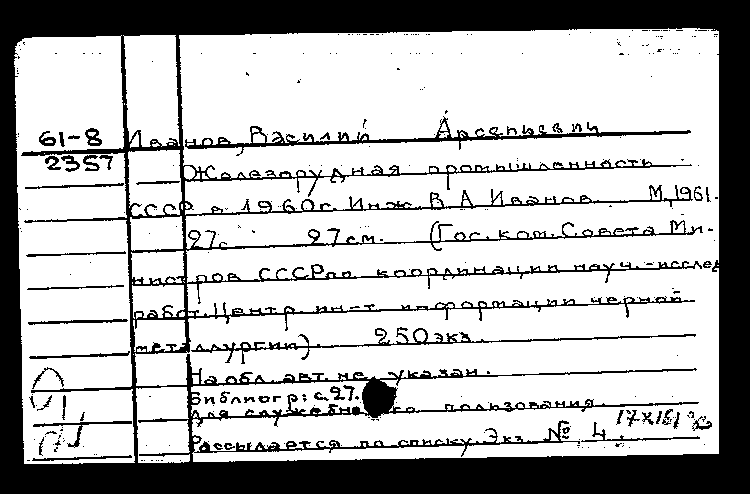 61-8 Иванов, Василий Арсеньевич
2357 Железорудная промышленность
СССР в 1960г. Инж. В А Иванов. М, 1961.
27с 27см. (Гос. ком. Совета Ми-
нистров СССР по координации науч.-исслед
работ. Центр. ин-т информации черной
металлургии). 250экз.
На обл. авт. не указан.
Библиогр: с. 27.
Для служебного пользования.
Рассылается по списку. Экз № 4.